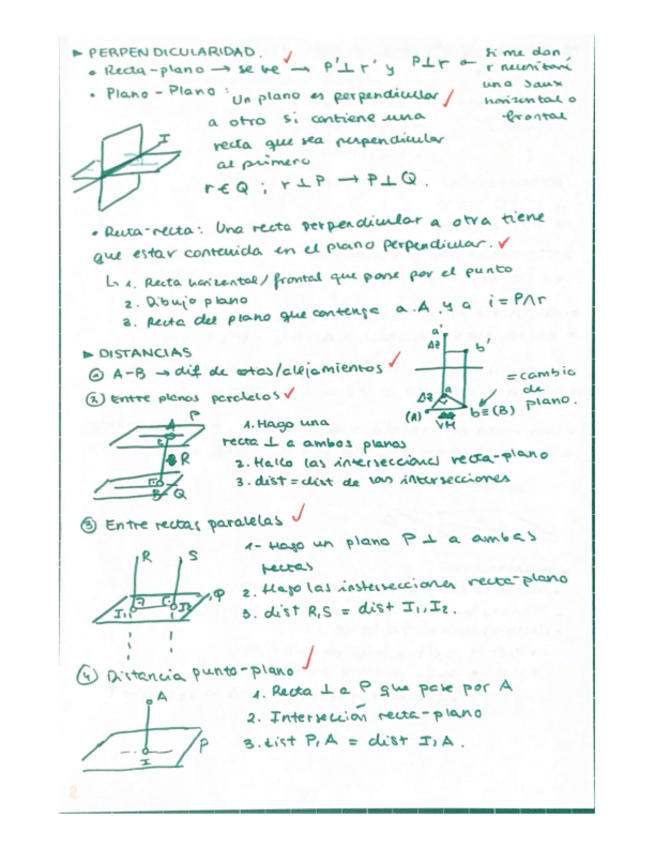 ► PERPENDICULARIDAD.
• Recta-plano → se ve → P'⊥r' y P⊥r ←
si me dan
r necesitaré
una
horizontal o
frontal
• Plano - Plano : Un plano es perpendicular
a otro si contiene una
recta que sea perpendicular
al primero
r ∈ Q ; r ⊥ P → P ⊥ Q .
I
• Recta-recta: Una recta perpendicular a otra tiene
que estar contenida en el plano perpendicular.
↳ 1. Recta horizontal/frontal que pase por el punto
2. Dibujo plano
3. Recta del plano que contenga a A y a i = P∩r
► DISTANCIAS
① A-B → dif de cotas/alejamientos
a'
Δz
b'
a
Δz
(A)
b≡(B)
VM
= cambio
de
plano.
② Entre planos paralelos
P
A
R
B
Q
1. Hago una
recta ⊥ a ambos planos
2. Hallo las intersecciones recta-plano
3. dist = dist de las intersecciones
③ Entre rectas paralelas
R
S
I1
I2
P
1- Hago un plano P ⊥ a ambas
rectas
2. Hago las instersecciones recta-plano
3. dist R,S = dist I1, I2.
④ Distancia punto-plano
A
I
P
1. Recta ⊥ a P que pase por A
2. Intersección recta-plano
3. dist P, A = dist I, A.